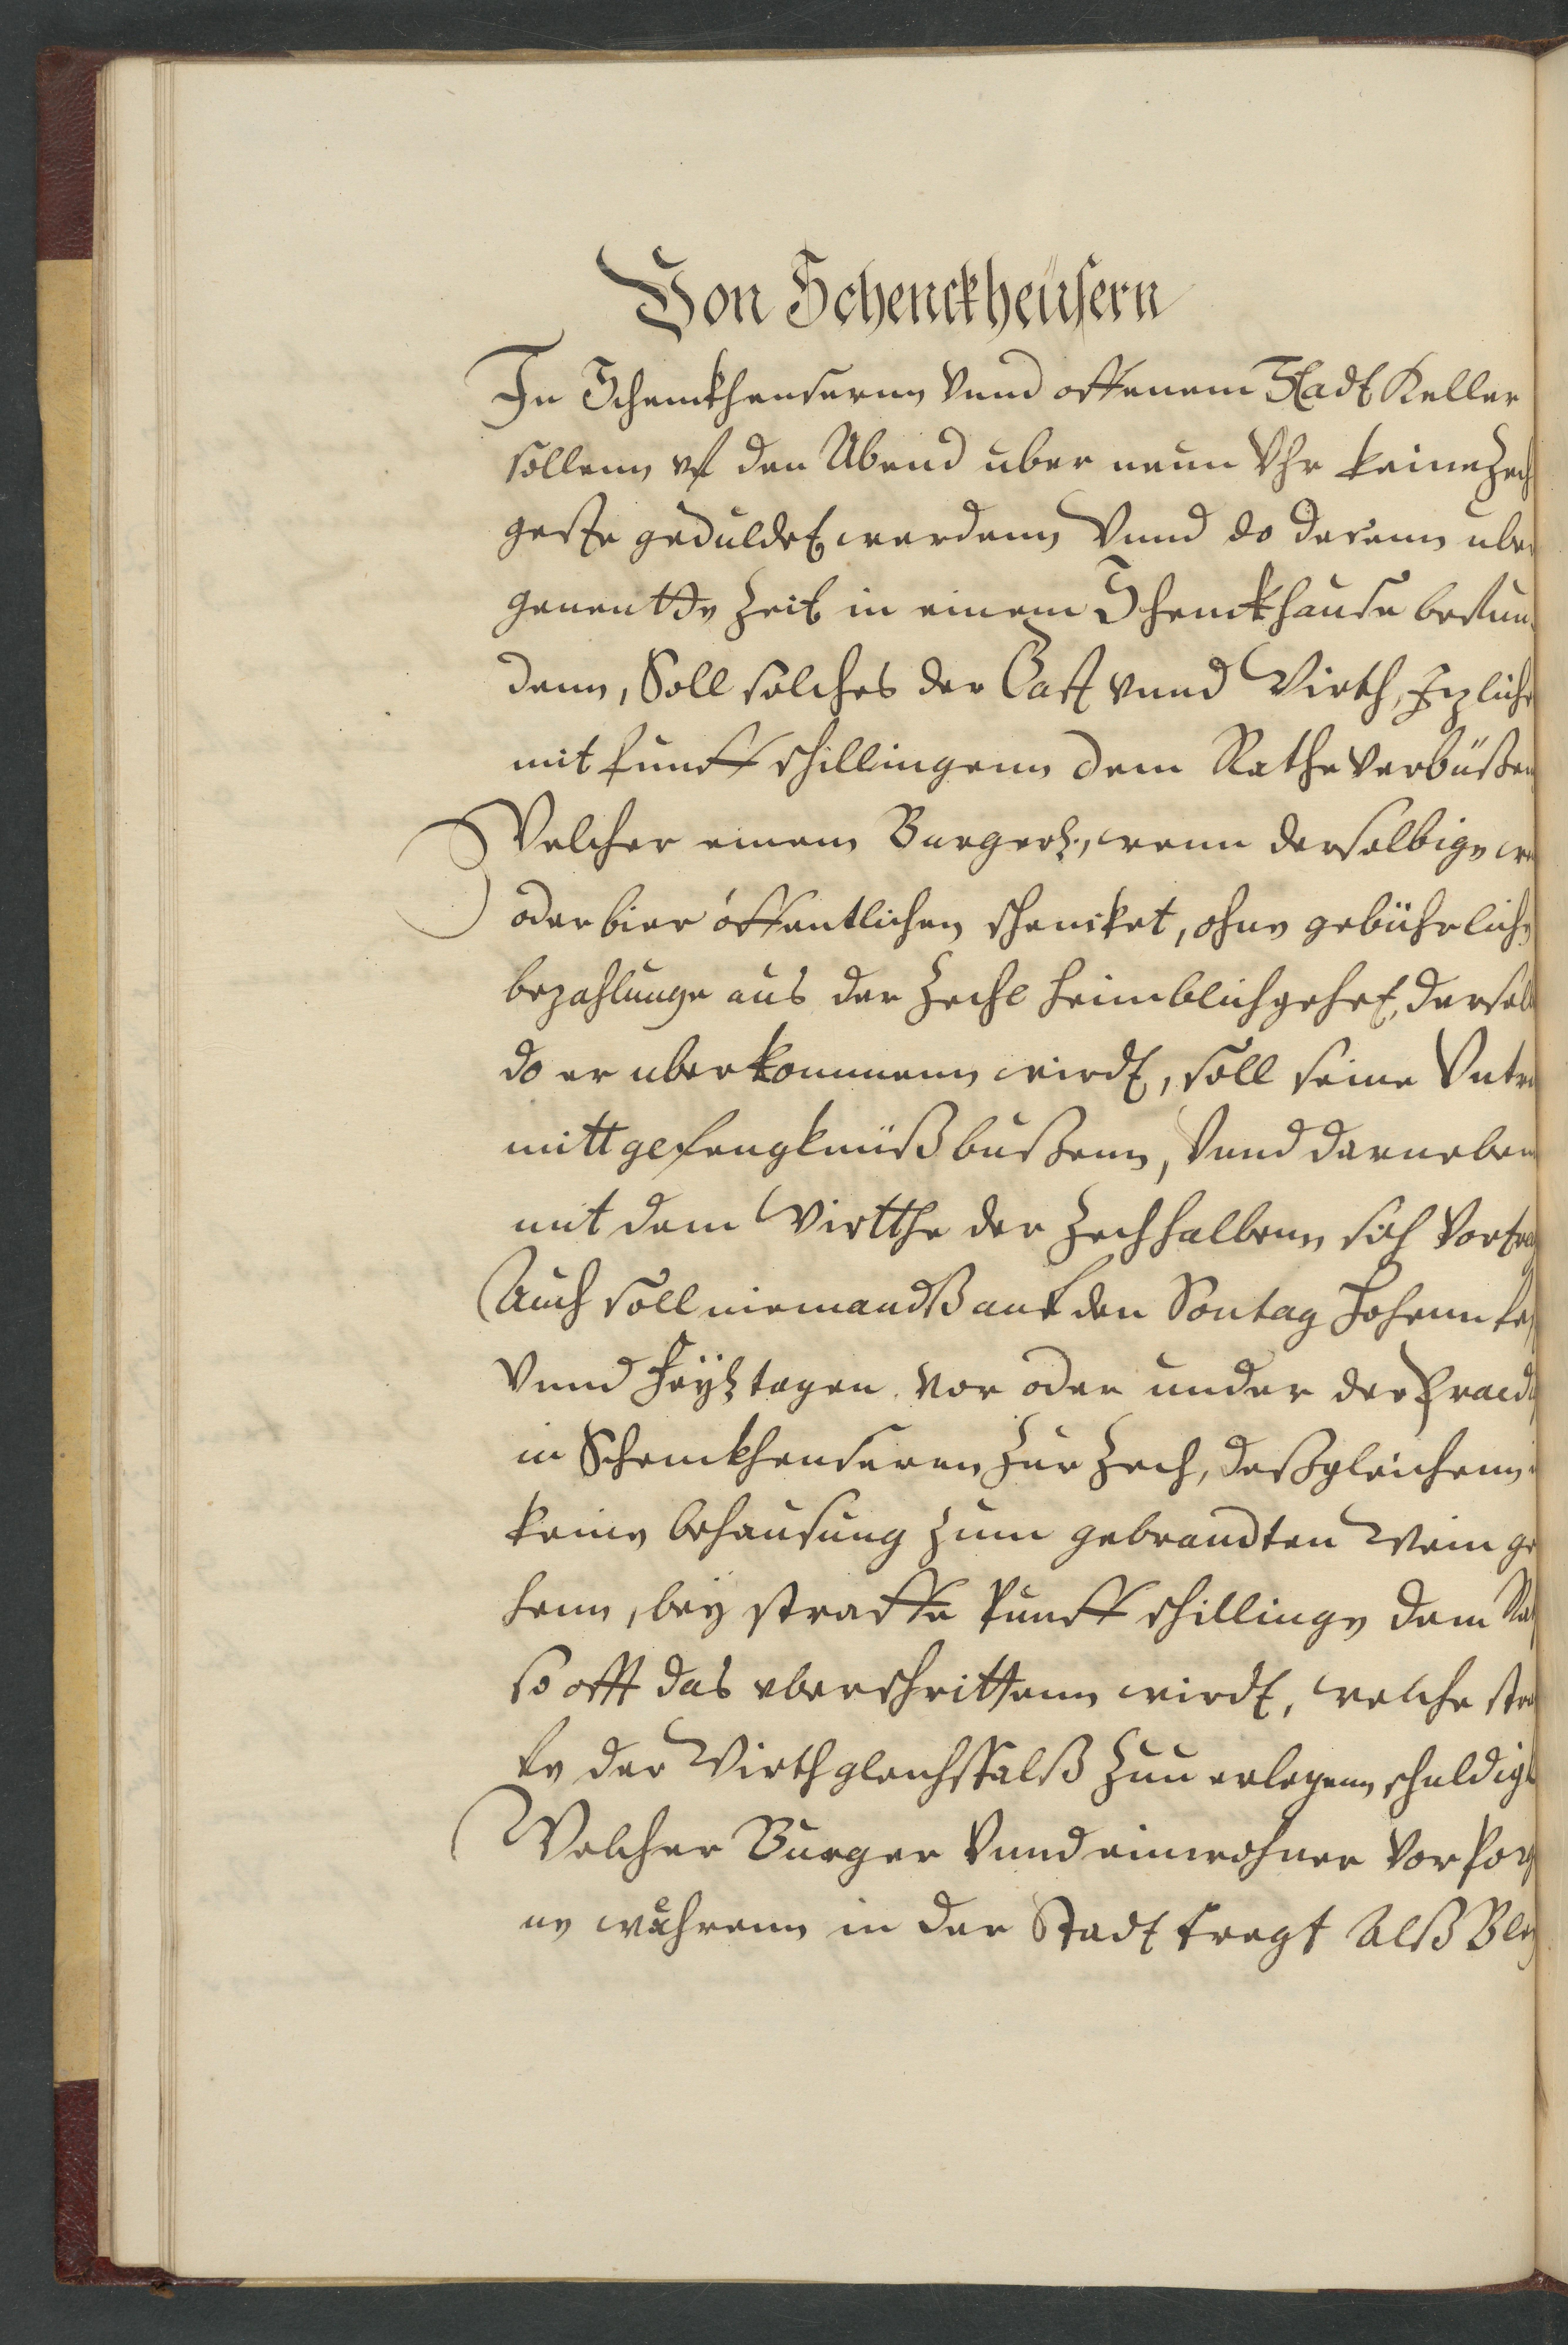 Von Schenckheüsern
In Schenckheusernn Vnnd offenem Stadt Keller
sollenn vf den Abend uber neun Vhr keine Zech
geste geduldet werdenn Vnnd do derenn uber
genentte Zeit in einem Schenckhause befun
denn, Soll solches der Gast vnnd Wirth, Izliche
mit funff schillingenn dem Rathe Verbüßen
Welcher einem Burger, wenn derselbige
oder bier öffentlichen schencket, ohne gebührliche
bezahlunge aus der Zeche heimblich gehet, dersel
do er uberkommenn wirdt, soll seine Vntre
mitt gefengknüß bußenn, Vnnd darneben
mit dem Wirtthe der Zech halbenn sich Vortra
Auch soll niemandß auf den Sontag Hohenn fes
Vnnd Feyertagen Vor oder under der Praed
in Schenckheuseren Zur Zech, deßgleichenn
keine behausung Zum gebrandten Wein ge
henn, bey straffe funff schillinge dem Ra
so offt das vberschrittenn wirdt, welche stra
fe der Wirth gleichffalß Zuu erlegenn schuldig
Welcher Burger Vnnd einwohner Vor
ne wehrenn in der Stadt tregt Alß Bley